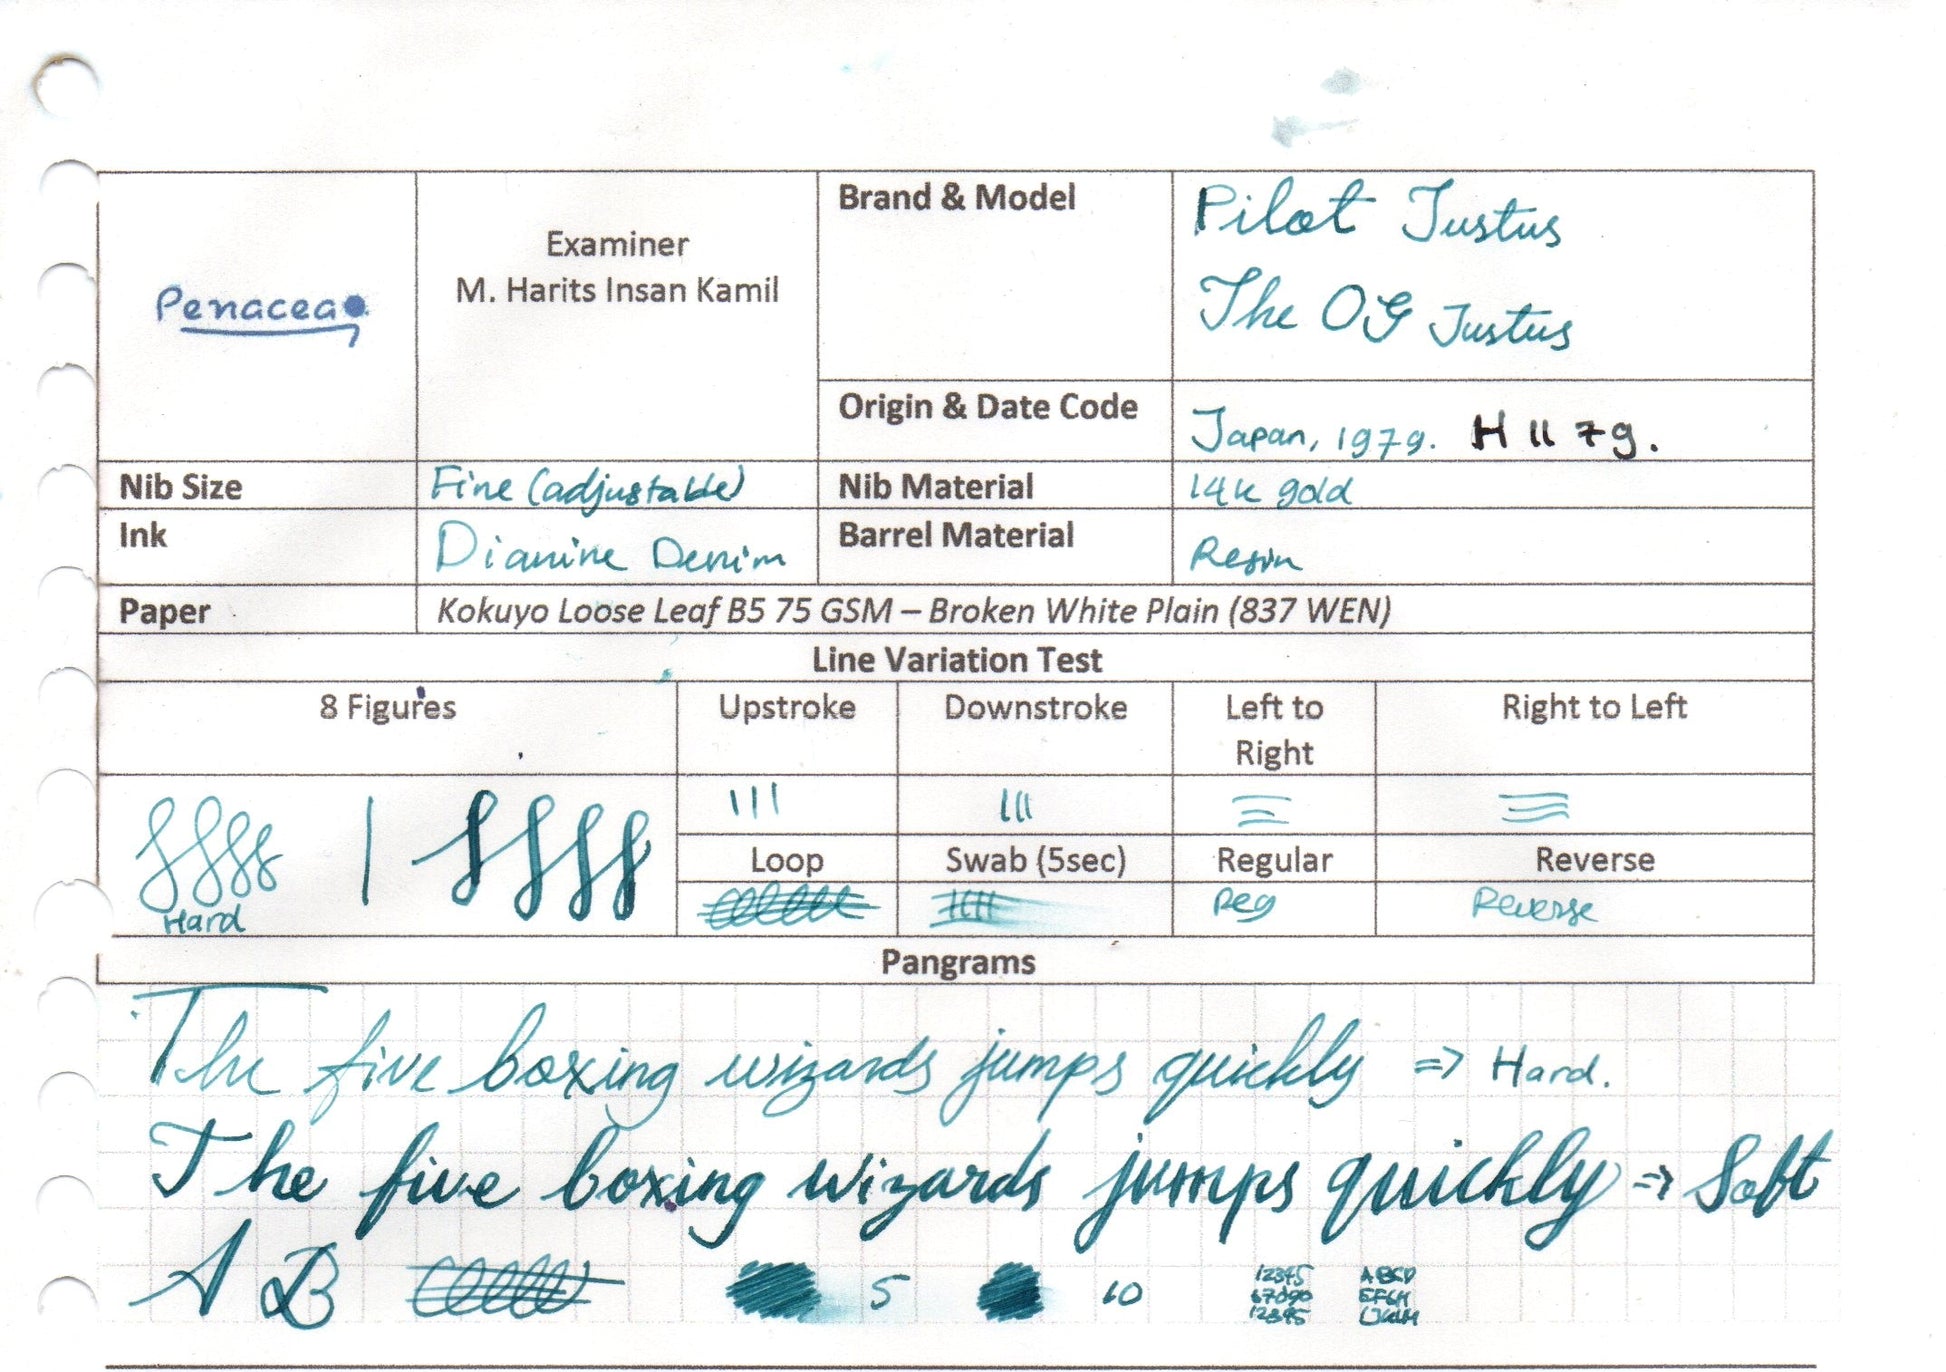 Penacea
Examiner
M. Harits Insan Kamil
Brand & Model
Pilot Justus
The OG Justus
Origin & Date Code
Japan, 1979. H1179.
Nib Size
Fine (adjustable)
Nib Material
14k gold
Ink
Dianine Denim
Barrel Material
Resin
Paper
Kokuyo Loose Leaf B5 75 GSM – Broken White Plain (837 WEN)
Line Variation Test
8 Figures
Upstroke
Downstroke
Left to
Right
Right to Left
Hard
Loop
Swab (5sec)
Regular
Reverse
Reg
Reverse
Pangrams
The five boxing wizards jumps quickly => Hard.
The five boxing wizards jumps quickly => Soft
A B 5 10
12345 ABCD
67890 EFGH
12345 IJKLM